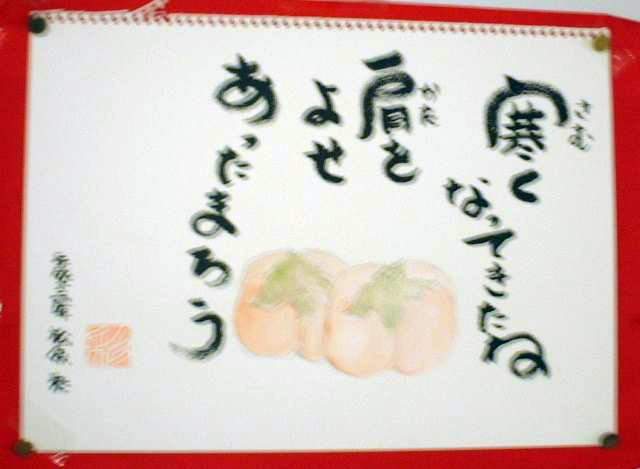 寒くなってきたね
さむ
肩を
かた
よせ
あったまろう